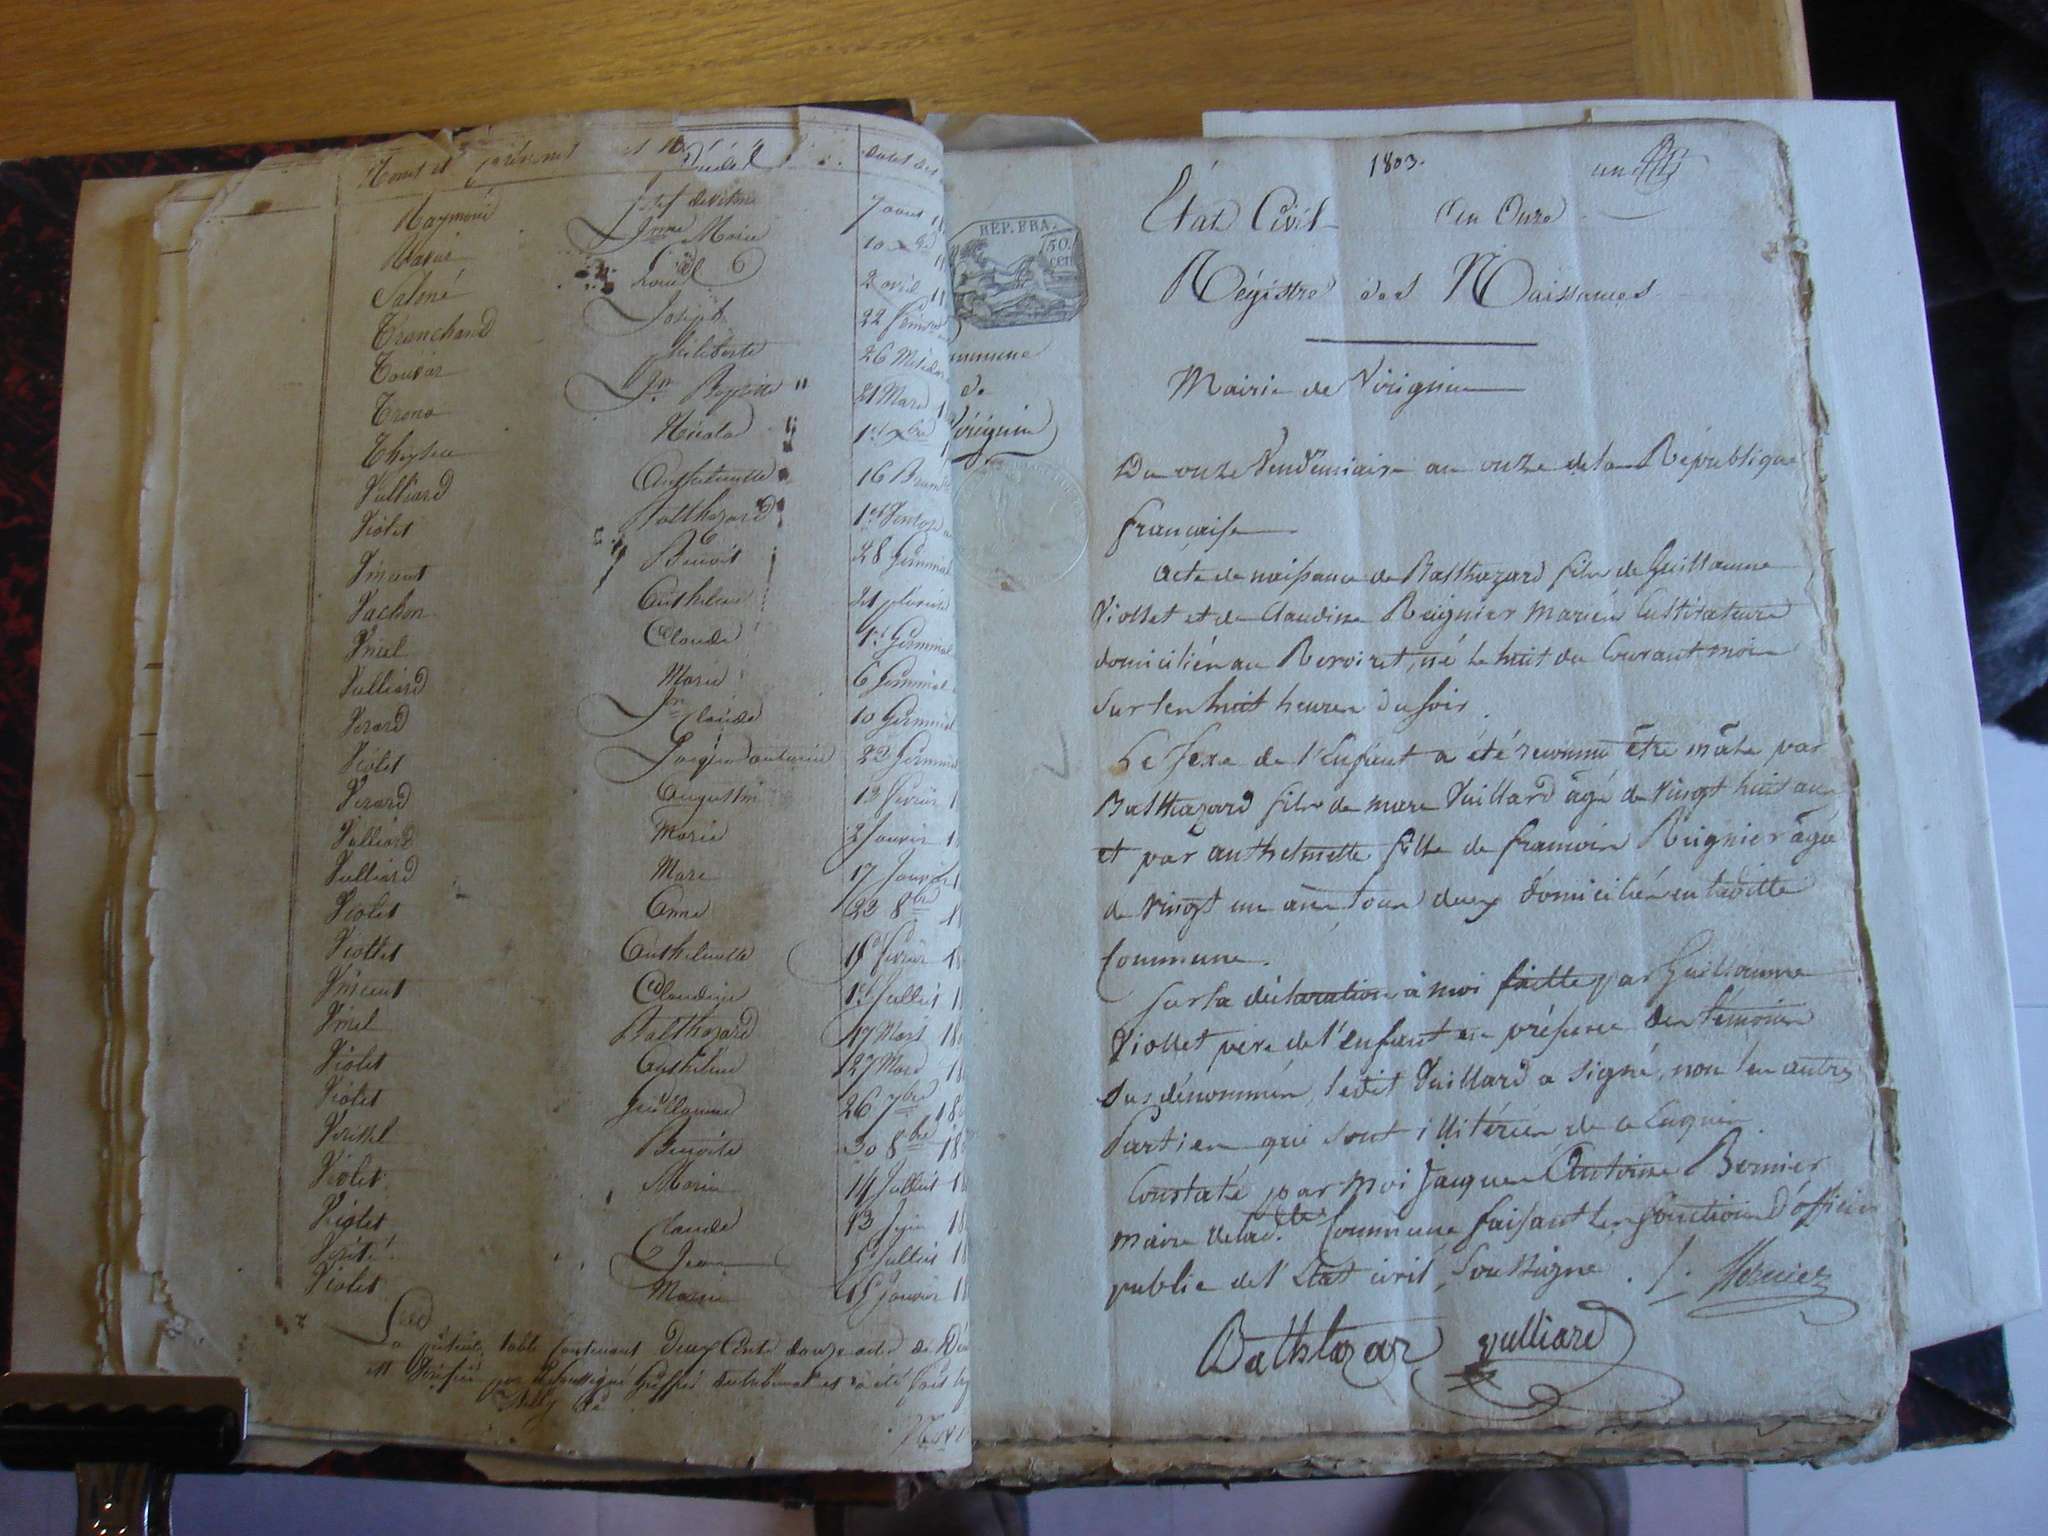 Noms et prénoms
dates des
Raymond
7 aout
Jnne Marie
10
Salomé
Louis
2 avril
Tranchand
Joseph
22
26 Messidor
Jn Baptiste
21 Mars
Nicolas
1er Xbre
Vulliard
Anthelmette
16 Brum
Violet
Balthazard
1er Ventose
Vincent
Benoit
28 Germinal
Vachon
Anthelme
21 pluviose
Claude
4 Germinal
Vulliard
Marie
6 Germinal
Verard
Jn Claude
10 Germinal
Violet
Jacques antoine
22 Germinal
Verard
Augustin
13 fevrier
Vulliard
Marie
2 Janvier
Vulliard
Marc
17 Janvier
Violet
Anne
22 8bre
Viollet
Anthelmette
15 fevrier
Vincent
Claudine
1er Juillet
Balthazard
17 Mars 18
Violet
Anthelme
27 Mars 18
Violet
Guillaume
26 7bre 18
Benoite
30 8bre 18
Violet
Marie
14 Juillet 1
Violet
Claude
13 Juin 18
Jean
5 Juillet 18
Violet
Marie
15 Janvier 18
La présente table contenant Deux Cents douze actes de
1803.
un
REP. FRA.
50.
CEN
État Civil
an Onze
Régistre des Naissances
mmune
de
Virignin
Mairie de Virignin
Du onze Vendémiaire an onze de la République
française
acte de naissance de Balthazard fils de Guillaume
Viollet et de Claudine Reignier mariés Cultivateurs
domiciliés au Revoiret, né le huit du Courant mois
sur les huit heures du soir.
Le sexe de l'Enfant a été reconnu être mâle par
Balthazard fils de marc Vuillard âgé de vingt huit ans
et par anthelmette fille de francois Reignier âgée
de vingt un ans tous deux domiciliés en laditte
Commune.
sur la déclaration à moi faitte par Guillaume
Viollet père de l'enfant en présence des témoins
sus dénommés, ledit Vuillard a signé, non les autres
Parties qui sont illitérées de ce Enquis.
Constaté par moi Jacques Antoine Bernier
maire de lad.te Commune faisant les fonctions d'officier
public de l'Etat civil, soussigné.
Balthazar vulliard